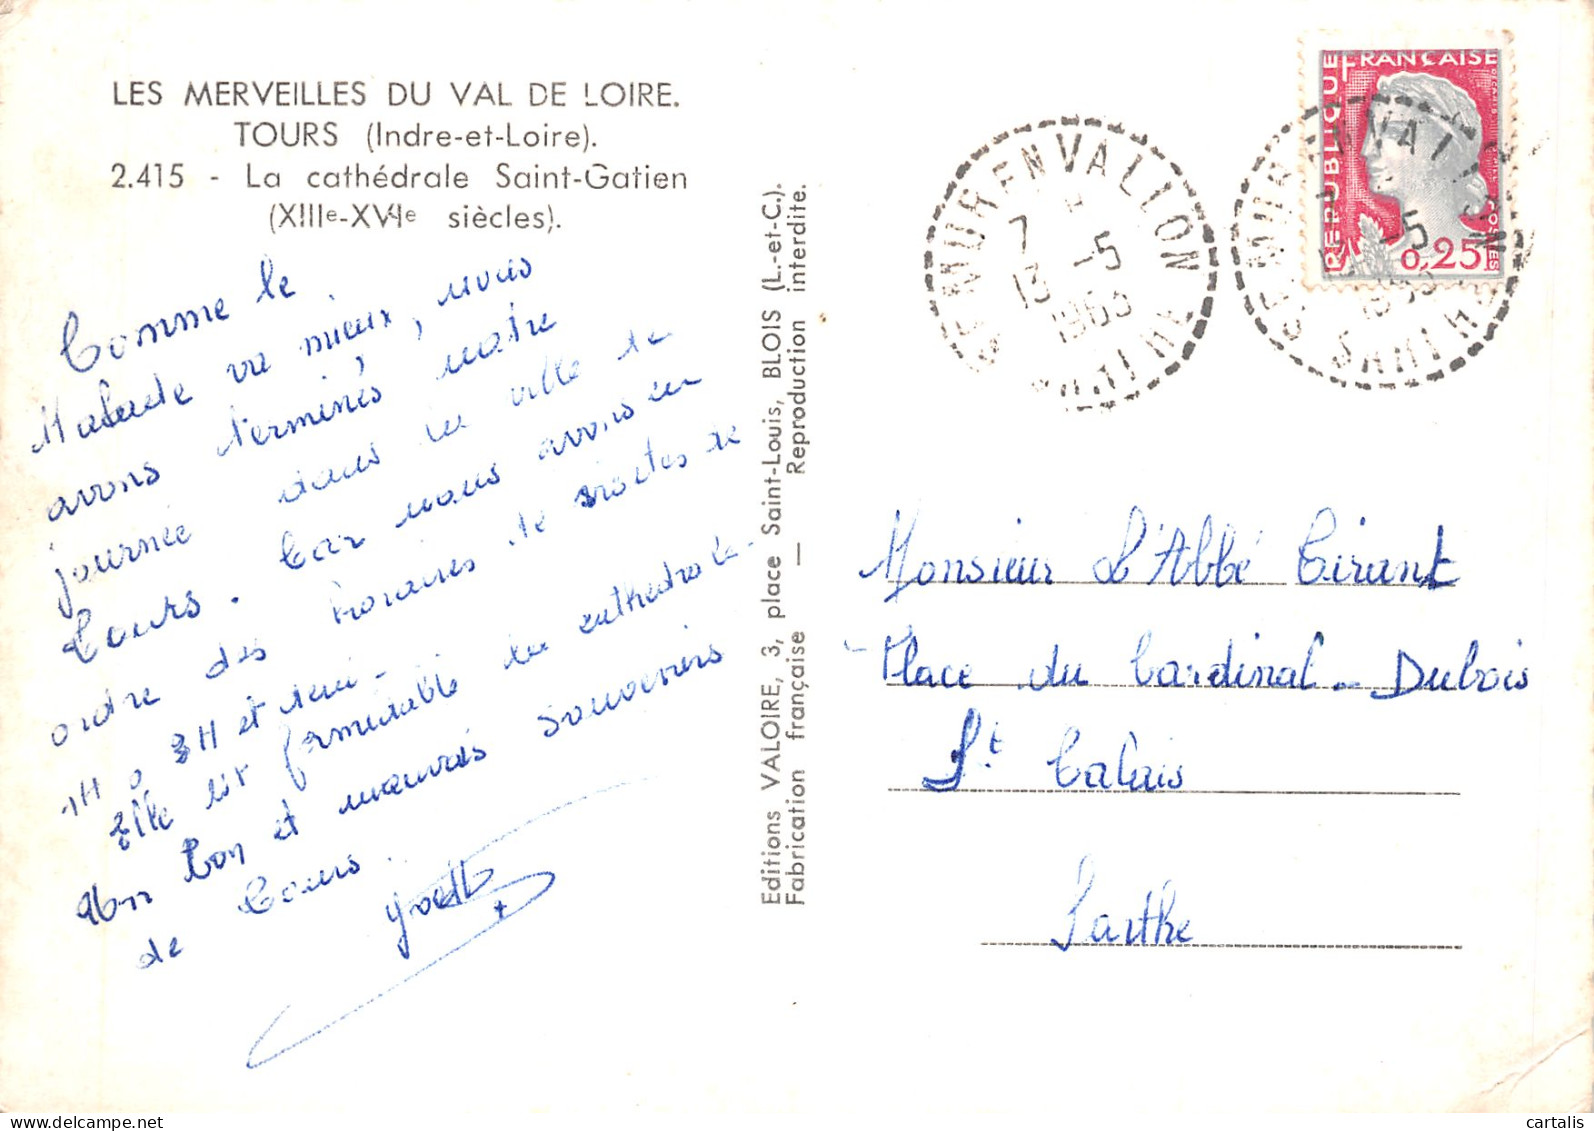 LES MERVEILLES DU VAL DE LOIRE.
TOURS (Indre-et-Loire).
2.415 - La cathédrale Saint-Gatien
(XIIIe-XVIe siècles).
Comme le
Malade va mieux, nous
avons terminés notre
journée dans la ville de
Tours. Car nous avons un
ordre des horaires de visites de
1H à 3H et demi.
Elle lit formidable la cathédrale.
Mon bon et mauvais souvenirs
de Tours.
Editions VALOIRE, 3, place Saint-Louis, BLOIS (L.-et-C.).
Fabrication française — Reproduction interdite.
SEMUR EN VALLON
7 H
13 -5
1963
SARTHE
RÉPUBLIQUE FRANÇAISE
POSTES
0,25
SEMUR EN VALLON
-5
SARTHE
Monsieur L'Abbé Tirant
Place du Cardinal - Dubois
St Calais
Sarthe
cartalis